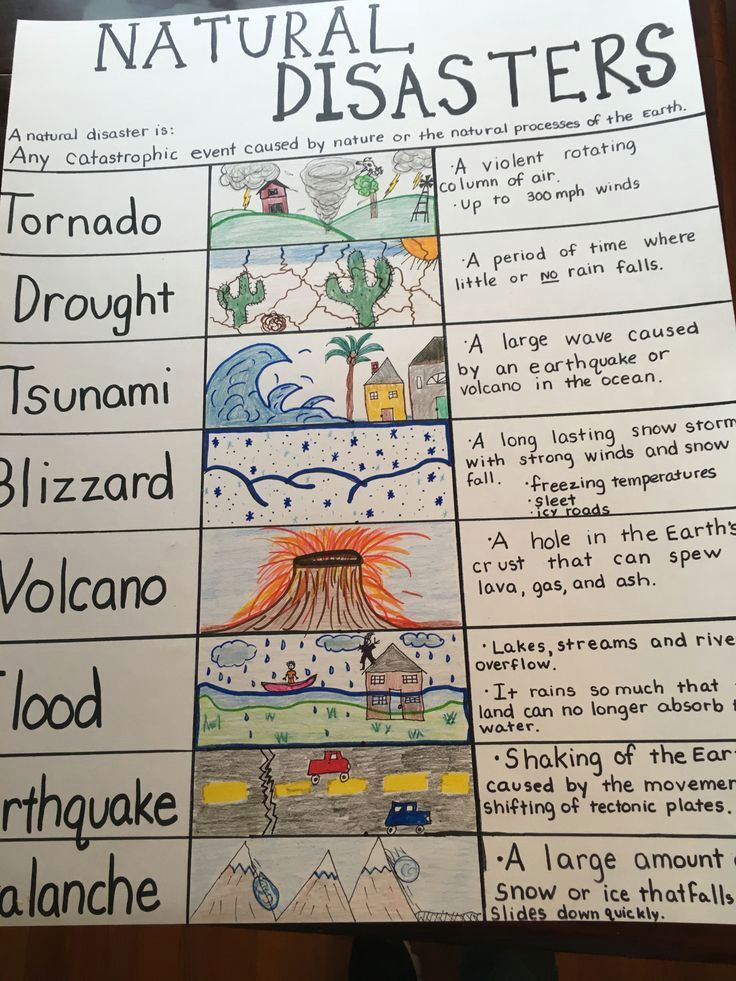 NATURAL
DISASTERS
A natural disaster is:
Any catastrophic event caused by nature or the natural processes of the Earth.
Tornado
·A violent rotating
column of air.
·Up to 300 mph winds
Drought
·A period of time where
little or no rain falls.
Tsunami
·A large wave caused
by an earthquake or
volcano in the ocean.
Blizzard
·A long lasting snow storm
with strong winds and snow
fall. ·freezing temperatures
·sleet
·icy roads
Volcano
·A hole in the Earth's
crust that can spew
lava, gas, and ash.
Flood
·Lakes, streams and rive
overflow.
·It rains so much that
land can no longer absorb t
water.
rthquake
·Shaking of the Ear
caused by the movemen
shifting of tectonic plates.
alanche
·A large amount
Snow or ice that falls
Slides down quickly.